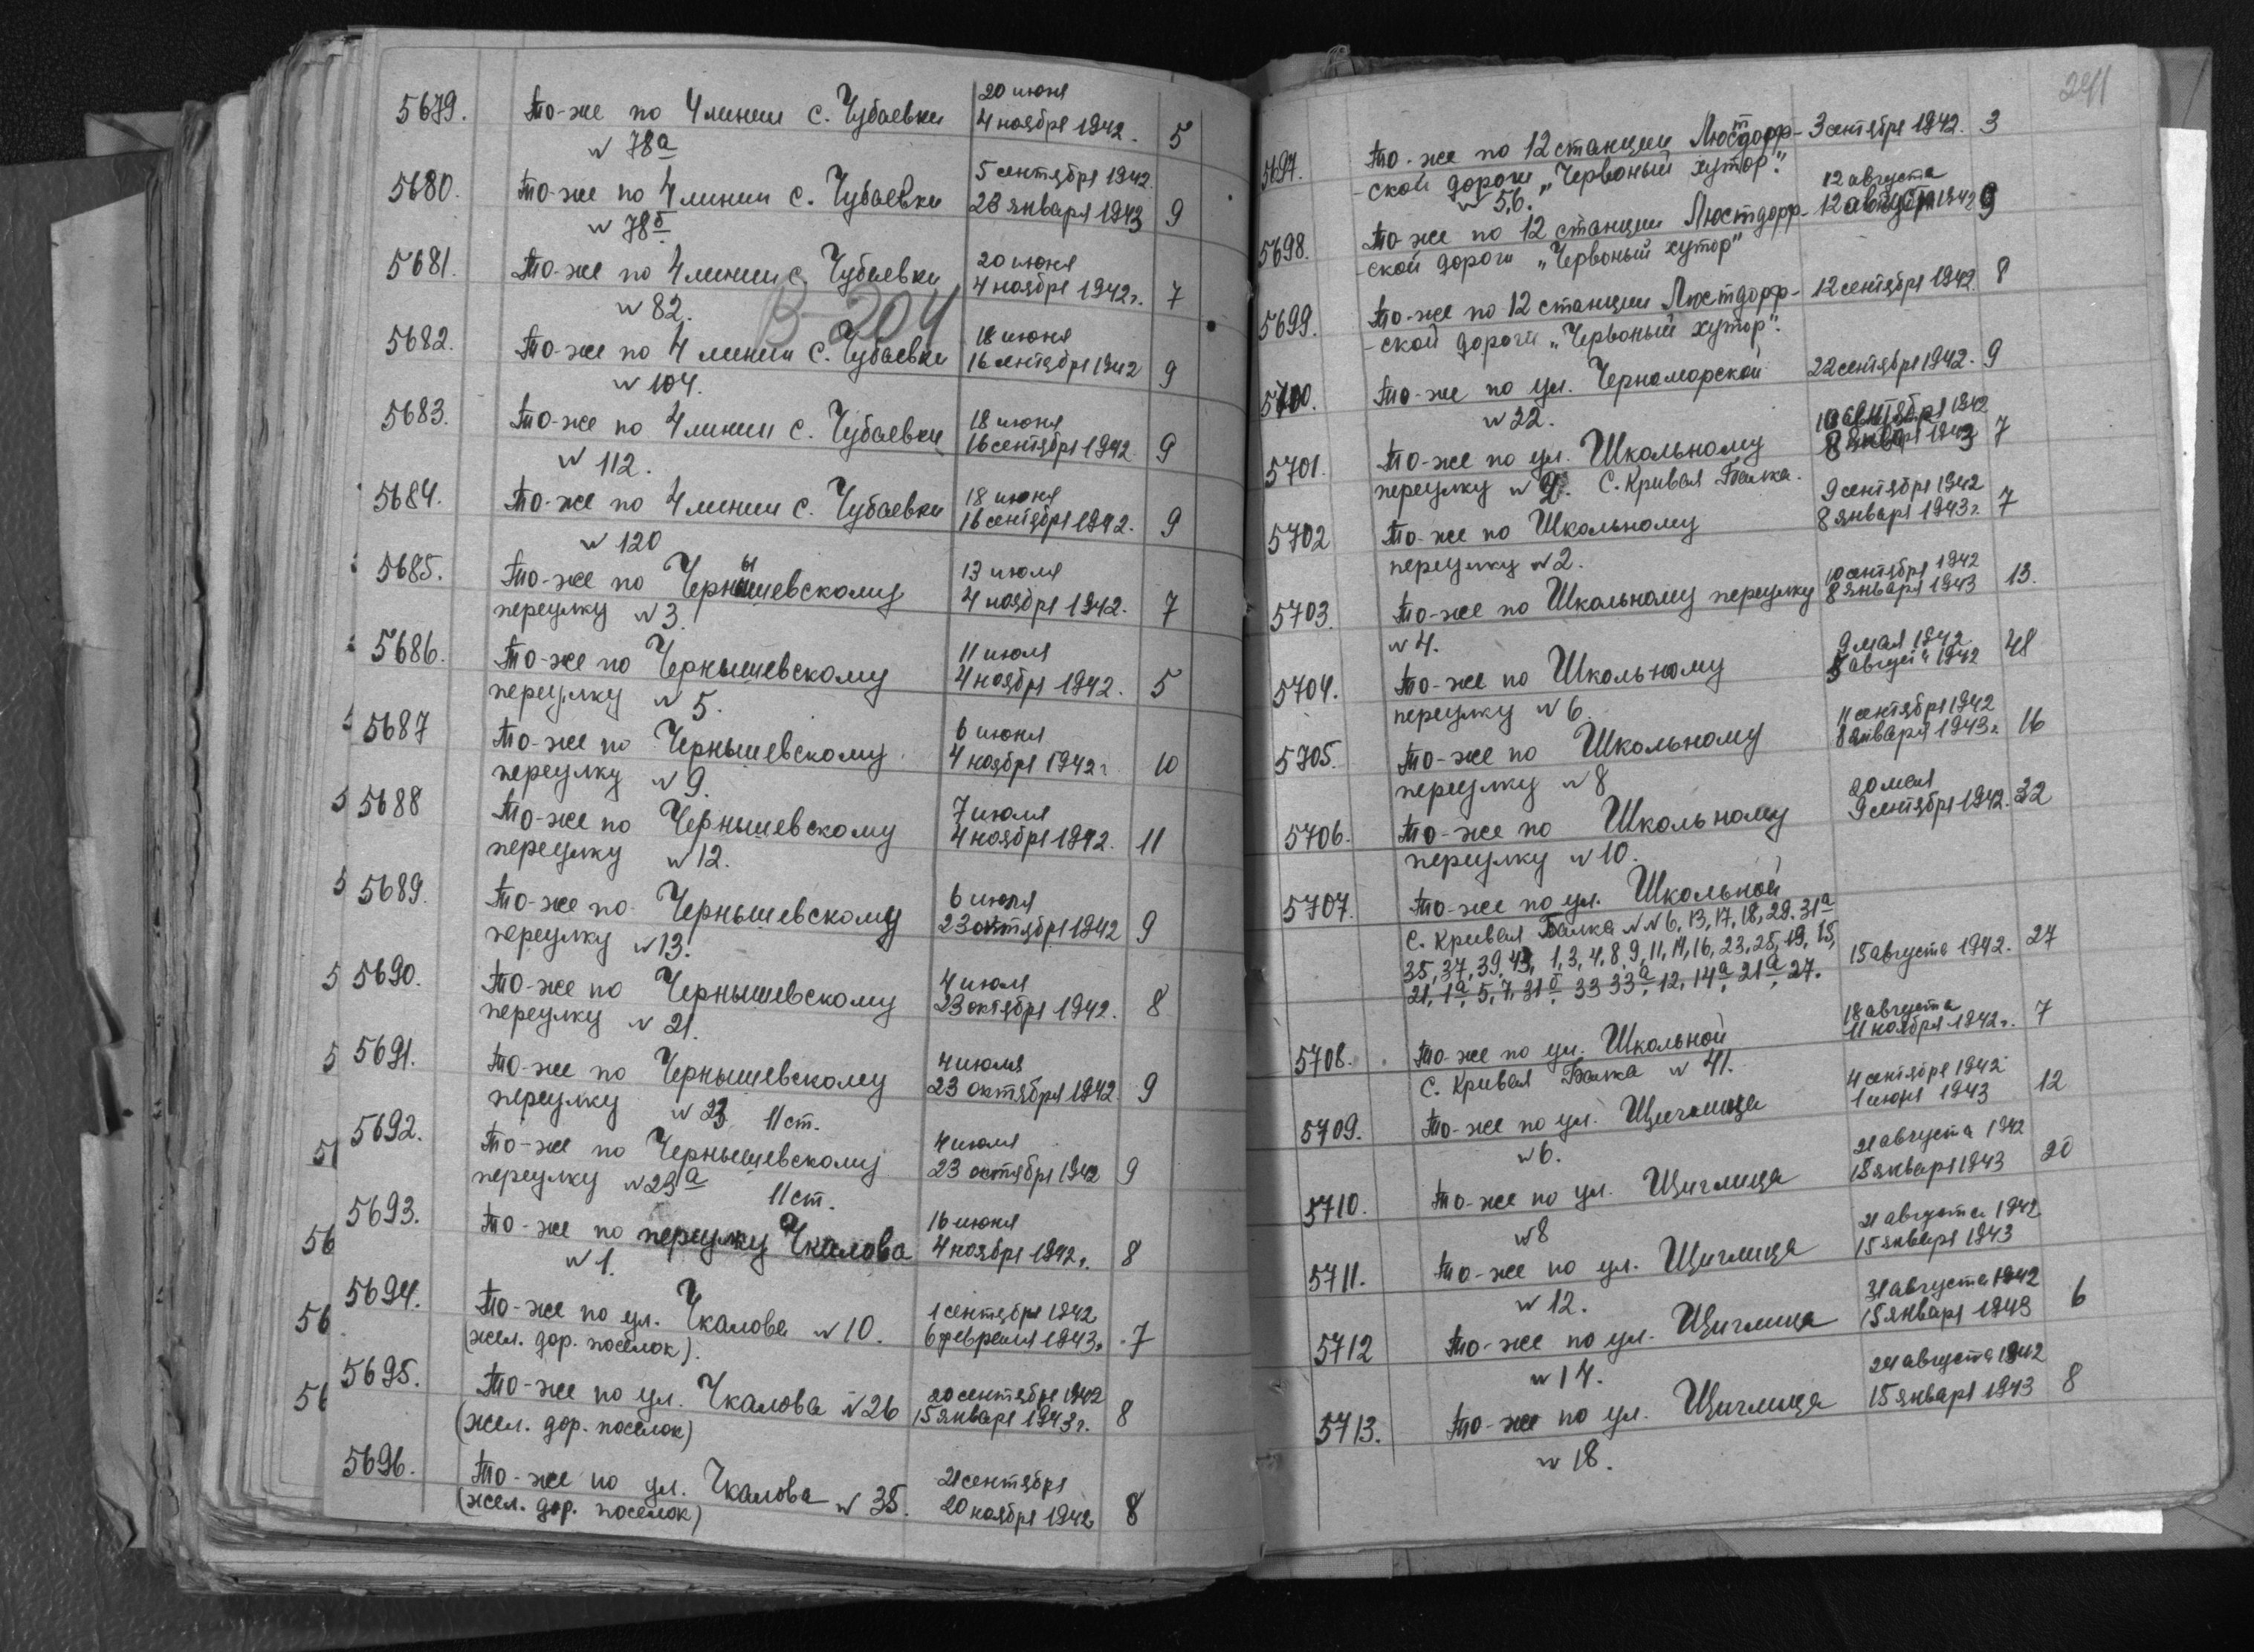 5679. То-же по 4 линии с. Чубаевки 20 июня
№ 78а 4 ноября 1942. 5
5680. То-же по 4 линии с. Чубаевки 5 сентября 1942.
№ 78б 23 января 1943 9
5681. То-же по 4 линии с. Чубаевки 20 июня
№ 82. 4 ноября 1942г. 7
В-204
5682. То-же по 4 линии с. Чубаевки 18 июня
№ 104. 16 сентября 1942 9
5683. То-же по 4 линии с. Чубаевки 18 июня
№ 112. 16 сентября 1942. 9
5684. То-же по 4 линии с. Чубаевки 18 июня
№ 120 16 сентября 1942. 9
5685. То-же по Чернышевскому 13 июля
переулку № 3. 4 ноября 1942. 7
5686. То-же по Чернышевскому 11 июля
переулку № 5. 4 ноября 1942. 5
5687 То-же по Чернышевскому 6 июня
переулку № 9. 4 ноября 1942г 10
5688 То-же по Чернышевскому 7 июля
переулку № 12. 4 ноября 1942. 11
5689. То-же по Чернышевскому 6 июля
переулку № 13. 23 октября 1942 9
5690. То-же по Чернышевскому 4 июля
переулку № 21. 23 октября 1942. 8
5691. То-же по Чернышевскому 4 июля
переулку № 23 11 ст. 23 октября 1942. 9
5692. То-же по Чернышевскому 4 июля
переулку № 23а 11 ст. 23 октября 1942 9
5693. То-же по переулку Чкалова 16 июня
№ 1. 4 ноября 1942г. 8
5694. То-же по ул. Чкалова № 10. 1 сентября 1942
(жел. дор. посёлок). 6 февраля 1943г. 7
5695. То-же по ул. Чкалова № 26 20 сентября 1942
(жел. дор. поселок) 15 января 1943г. 8
5696. То-же по ул. Чкалова № 35. 21 сентября
(жел. дор. поселок) 20 ноября 1942 8
241
5697. То-же по 12 станции Люстдорф- 3 сентября 1942. 3
-ской дороги „Червоный хутор".
№ 56.
5698. То-же по 12 станции Люстдорф- 12 августа 1942 9
-ской дороги „Червоный хутор"
5699. То-же по 12 станции Люстдорф- 12 сентября 1942. 8
-ской дороги „Червоный хутор".
5700. То-же по ул. Черноморской 22 сентября 1942. 9
№ 22.
5701. То-же по ул. Школьному сентября 1942
переулку № с. Кривая Балка. 8 января 1943 7
5702 То-же по Школьному 9 сентября 1942
переулку № 2. 8 января 1943г. 7
5703. То-же по Школьному переулку 10 сентября 1942
№ 4. 8 января 1943 13.
5704. То-же по Школьному 9 мая 1942
переулку № 6. августа 1942 48
5705. То-же по Школьному 11 сентября 1942
переулку № 8 8 января 1943г. 16
5706. То-же по Школьному 20 мая
переулку № 10. 9 сентября 1942. 32
5707. То-же по ул. Школьной
с. Кривая Балка №№ 6, 13, 17, 18, 29, 31а
35, 37, 39, 43, 1, 3, 4, 8, 9, 11, 14, 16, 23, 25, 19, 15,
21, 1а, 5, 7, 31б, 33 33а, 12, 14а, 21а, 27. 15 августа 1942. 27
5708. То-же по ул. Школьной 18 августа
с. Кривая Балка № 41. 11 ноября 1942г. 7
5709. То-же по ул. Щиглица 4 сентября 1942
№ 6. 1 1943 12
5710. То-же по ул. Щиглица 21 августа 1942
№ 8 15 января 1943 20
5711. То-же по ул. Щиглица 21 августа 1942
№ 12. 15 января 1943
5712 То-же по ул. Щиглица 31 августа 1942
№ 14. 15 января 1943 6
5713. То-же по ул. Щиглица 24 августа 1942
№ 18. 15 января 1943 8